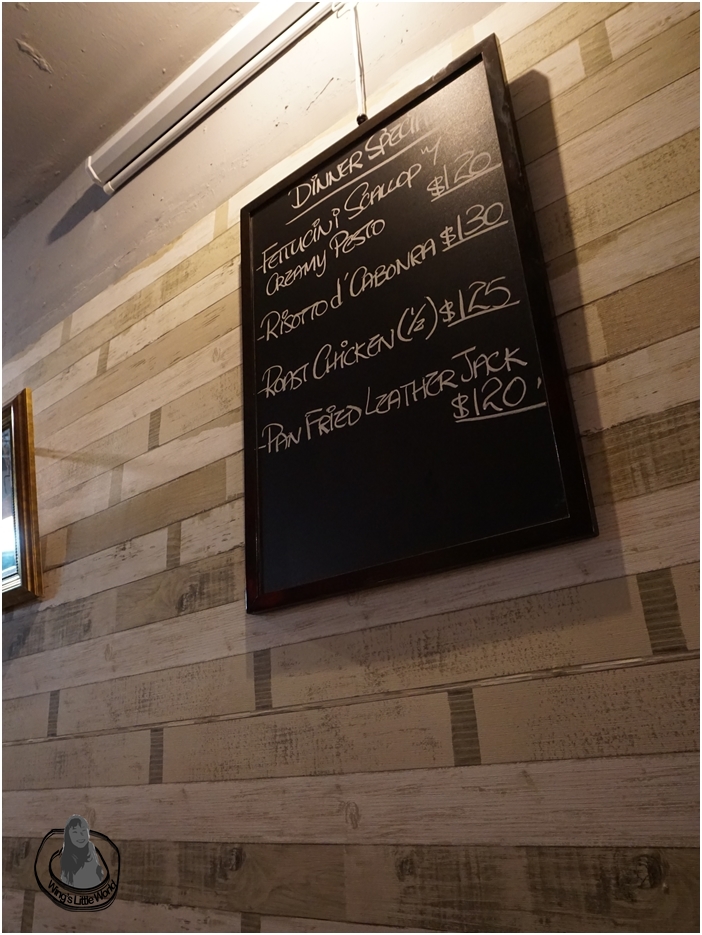 DINNER SPECIAL
-FETTUCINI SCALLOP w/
CREAMY PESTO $120
-RISOTTO d'CABONRA $130
-ROAST CHICKEN (1/2) $125
-PAN FRIED LEATHER JACK
$120
Wing's Little World